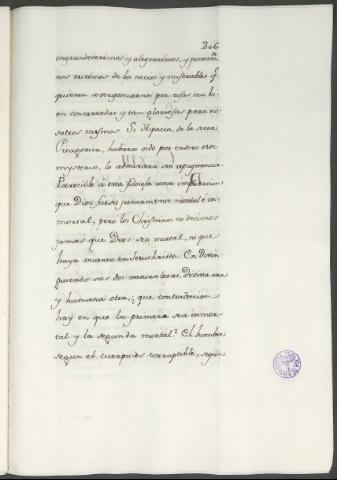 206
engrandeceremos y alegraremos, y juntam.te
nos reiremos de los necios y miserables q.e
quieren avergonzarnos por cosas tan bi
en concertadas y tan gloriosas para no
sotros mismos. Si Hipacia, de la secta
Pitagorica, hubiera oido por entero este
mysterio, lo admiraria sin repugnancia.
Pareciole a esta filosofa una implicacion
que Dios fuese juntamente mortal e in
mortal; pero los Christianos no decimos
jamas que Dios sea mortal, ni que
haya muerto en Jesuchristo. En Distin
guiendo sus dos naturalezas, Divina una
y humana otra, ¿que contradiccion
hay en que la primera sea inmor
tal y la segunda mortal? El hombre
segun el cuerpo es corruptible, segun